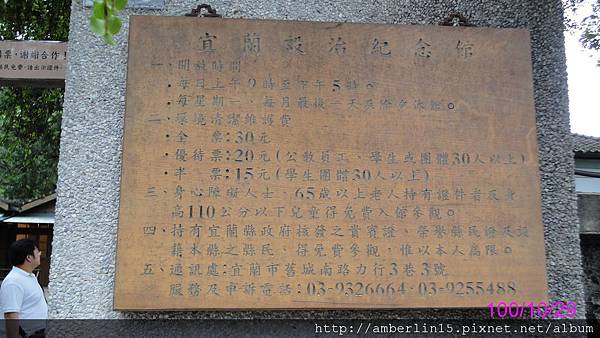 購票，謝謝合作！
宜蘭設治紀念館
一、開放時間：
．每日上午9時至下午5時。
．每星期一、每月最後一天及除夕休館。
二、環境清潔維護費
．全　票：30元
．優待票：20元（公教員工、學生或團體30人以上）
．半　票：15元（學生團體30人以上）
三、身心障礙人士、65歲以上老人持有證件者及身
高110公分以下兒童得免費入館參觀。
四、持有宜蘭縣政府核發之貴賓證、榮譽縣民證及設
籍本縣之縣民，得免費參觀，惟以本人為限。
五、通訊處：宜蘭市舊城南路力行3巷3號
服務及申訴電話：03-9326664．03-9255488
100/10/29
http://amberlin15.pixnet.net/album